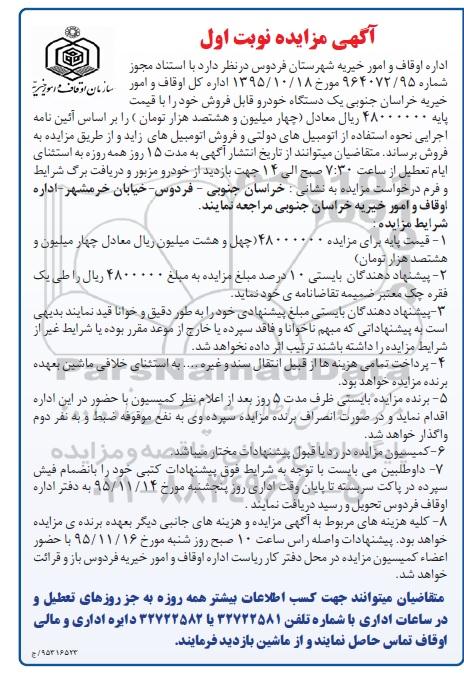 آگهی مزایده نوبت اول
سازمان اوقاف و امور خیریه
اداره اوقاف و امور خیریه شهرستان فردوس درنظر دارد با استناد مجوز
شماره ۹۶۴۰۷۲/۹۵ مورخ ۱۳۹۵/۱۰/۱۸ اداره کل اوقاف و امور
خیریه خراسان جنوبی یک دستگاه خودرو قابل فروش خود را با قیمت
پایه ۴۸۰۰۰۰۰۰ ریال معادل (چهار میلیون و هشتصد هزار تومان ) را بر اساس آئین نامه
اجرایی نحوه استفاده از اتومبیل های دولتی و فروش اتومبیل های زاید و از طریق مزایده به
فروش برساند. متقاضیان میتوانند از تاریخ انتشار آگهی به مدت ۱۵ روز همه روزه به استثنای
ایام تعطیل از ساعت ۷:۳۰ صبح الی ۱۴ جهت بازدید از خودرو مزبور و دریافت برگ شرایط
و فرم درخواست مزایده به نشانی : خراسان جنوبی - فردوس-خیابان خرمشهر-اداره
اوقاف و امور خیریه خراسان جنوبی مراجعه نمایند.
شرایط مزایده :
۱- قیمت پایه برای مزایده ۴۸۰۰۰۰۰۰(چهل و هشت میلیون ریال معادل چهار میلیون و
هشتصد هزار تومان)
۲- پیشنهاد دهندگان بایستی ۱۰ درصد مبلغ مزایده به مبلغ ۴۸۰۰۰۰۰ ریال را طی یک
فقره چک معتبر ضمیمه تقاضانامه ی خود نماید.
۳-پیشنهاد دهندگان بایستی مبلغ پیشنهادی خود را به طور دقیق و خوانا قید نمایند بدیهی
است به پیشنهاداتی که مبهم ناخوانا و فاقد سپرده یا خارج از موعد مقرر بوده یا شرایط غیر از
شرایط مزایده را داشته باشند ترتیب اثر داده نخواهد شد.
۴- پرداخت تمامی هزینه ها از قبیل انتقال سند و غیره .... به استثنای خلافی ماشین بعهده
برنده مزایده خواهد بود.
۵- برنده مزایده بایستی ظرف مدت ۵ روز بعد از اعلام نظر کمیسیون با حضور در این اداره
اقدام نماید و در صورت انصراف برنده مزایده سپرده وی به نفع موقوفه ضبط و به نفر دوم
واگذار خواهد شد.
۶-کمیسیون مزایده در رد یا قبول پیشنهادات مختار میباشد.
۷- داوطلبین می بایست با توجه به شرایط فوق پیشنهادات کتبی خود را بانضمام فیش
سپرده در پاکت سربسته تا پایان وقت اداری روز پنجشنبه مورخ ۹۵/۱۱/۱۴ به دفتر اداره
اوقاف فردوس تحویل و رسید دریافت نمایند .
۸- کلیه هزینه های مربوط به آگهی مزایده و هزینه های جانبی دیگر بعهده برنده ی مزایده
خواهد بود. پیشنهادات واصله راس ساعت ۱۰ صبح روز شنبه مورخ ۹۵/۱۱/۱۶ با حضور
اعضاء کمیسیون مزایده در محل دفتر کار ریاست اداره اوقاف و امور خیریه فردوس باز و قرائت
خواهد شد.
متقاضیان میتوانند جهت کسب اطلاعات بیشتر همه روزه به جز روزهای تعطیل و
در ساعات اداری با شماره تلفن ۳۲۷۲۲۵۸۱ یا ۳۲۷۲۲۵۸۲ دایره اداری و مالی
اوقاف تماس حاصل نمایند و از ماشین بازدید فرمایند.
۹۵۳۱۶۵۲۳/ج
ParsNamadData